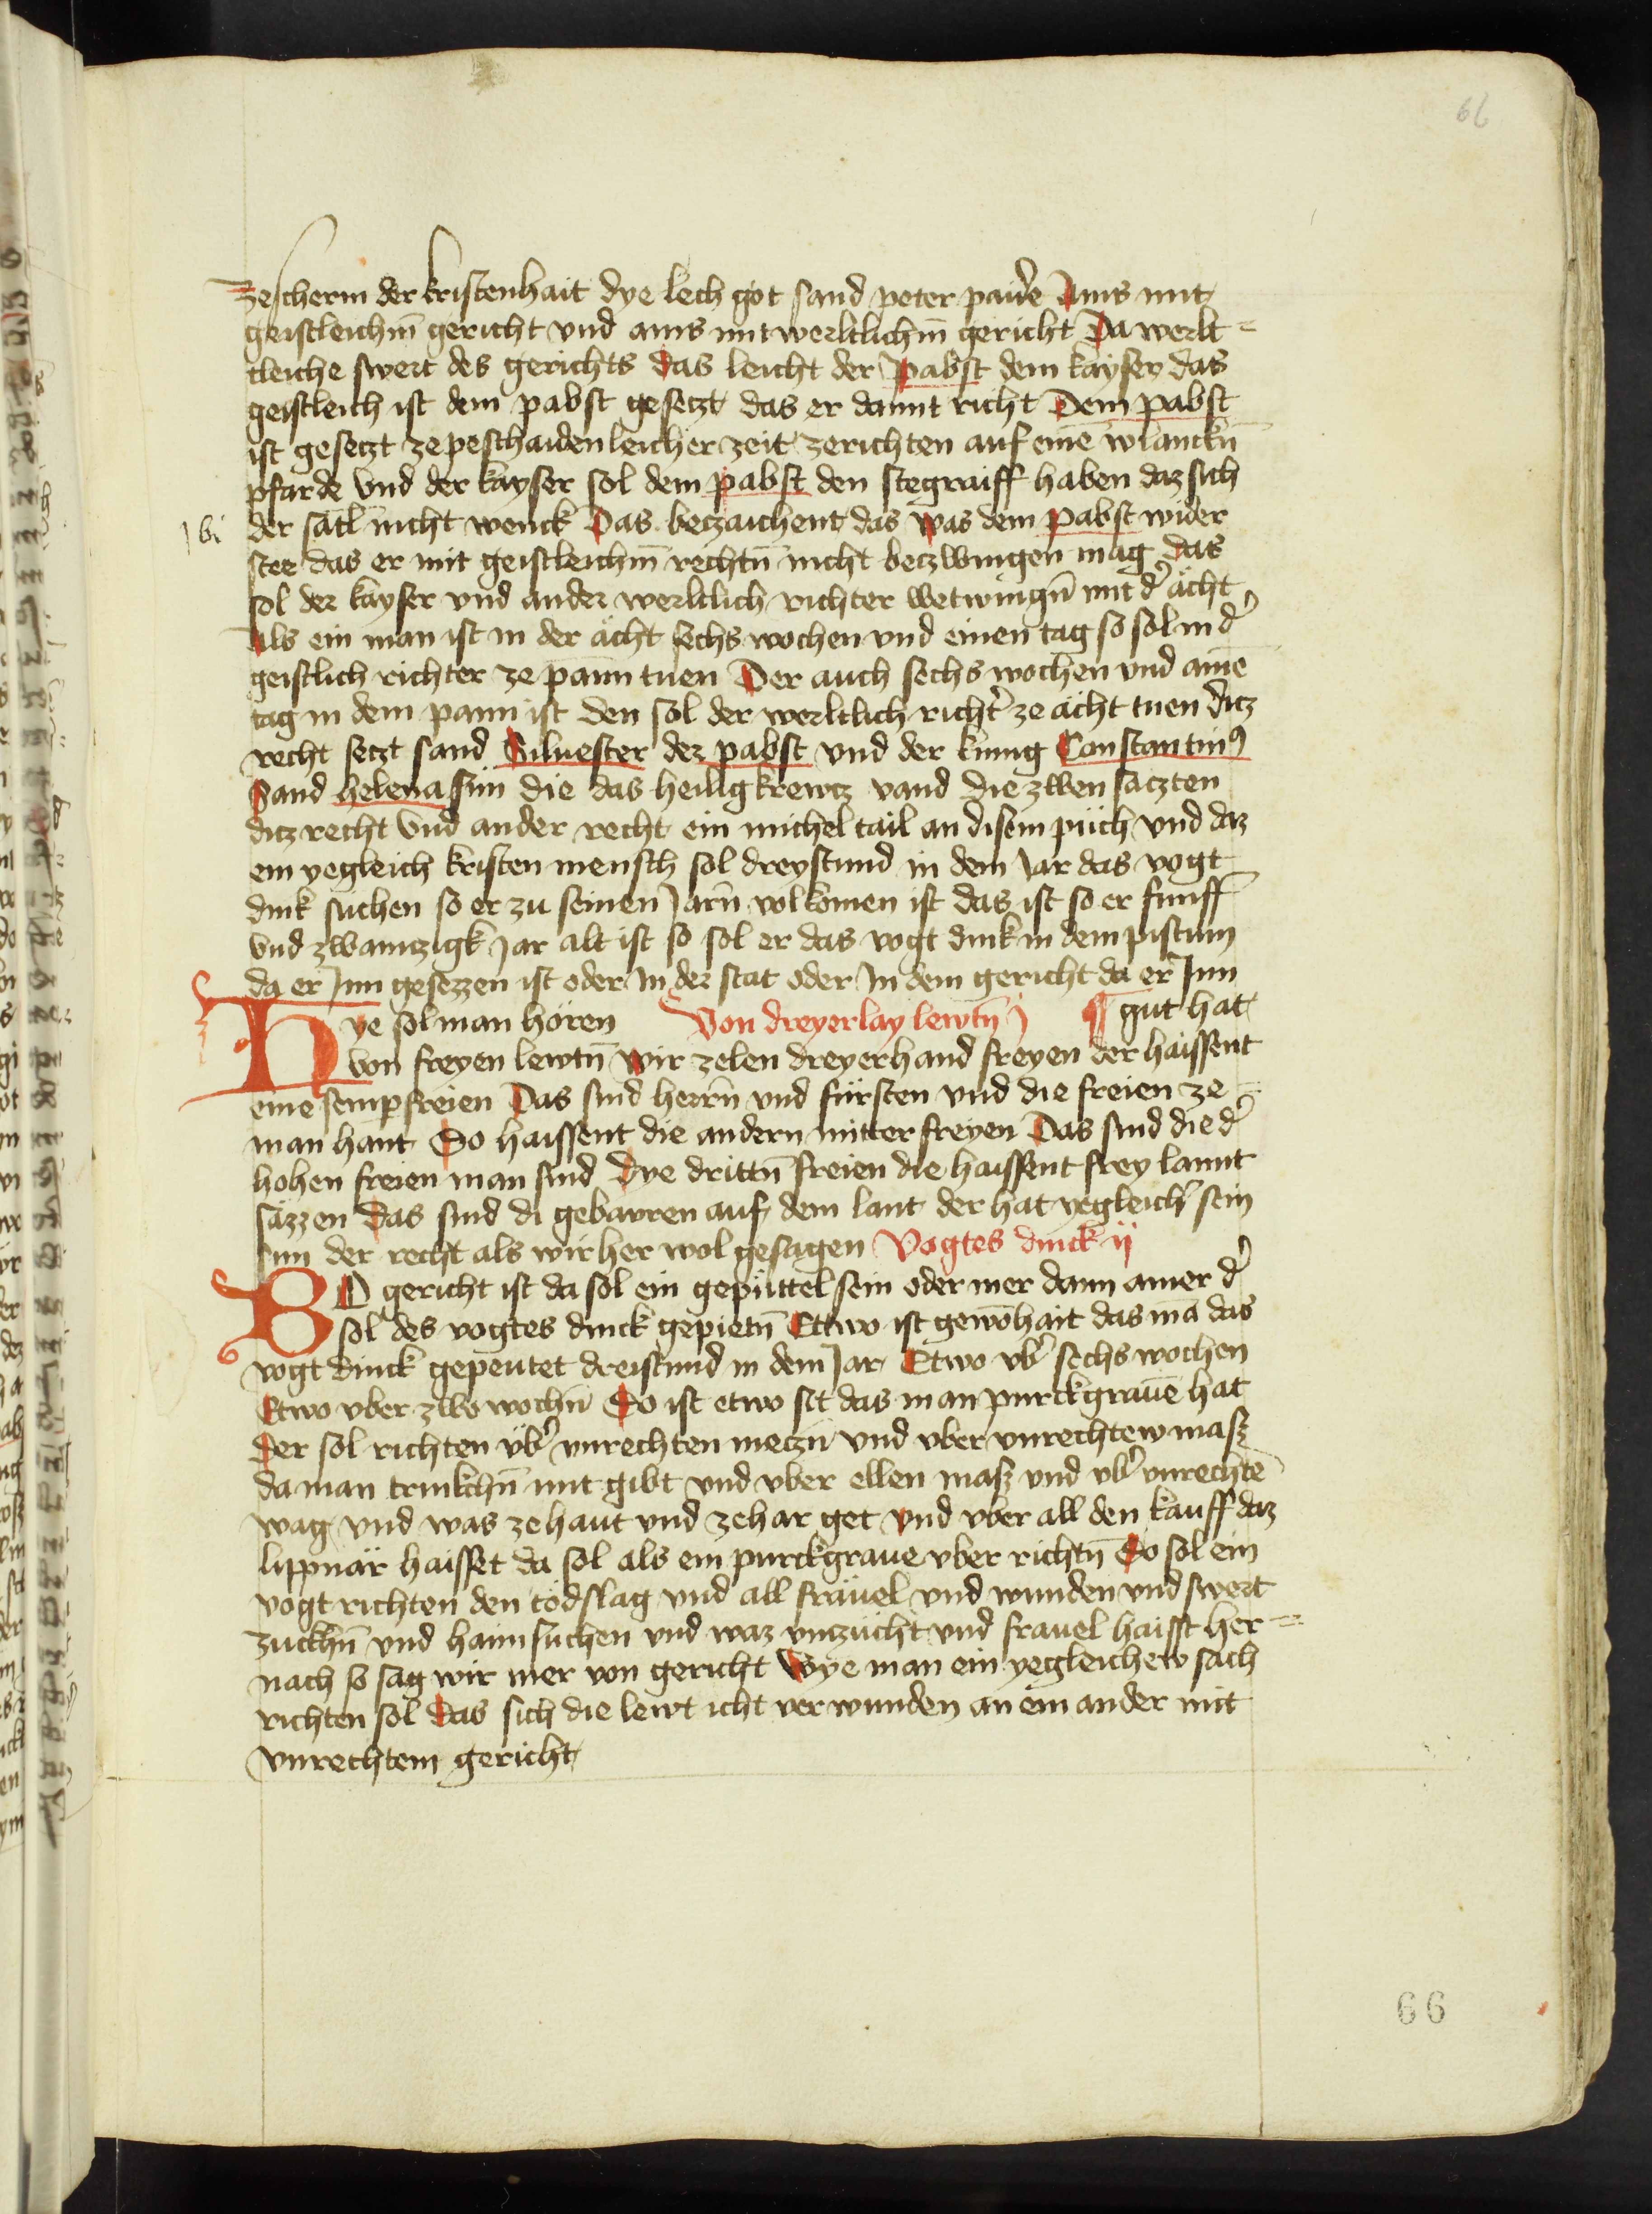 66
zescherm der kristenhait dye lech got sand peter paid̕e Ains mit
geistleichm̄ gericht vnd ains mit werltlichm̄ gericht Da werlt=
tleiche swert des gerichts das leicht der Pabst dem kayser das
geistleich ist dem pabst gesetzt das er damit richt Dem pabst
ist gesetzt ze peschaidenleicher zeit zerichten auf eine᷄ wlanckn̄
pfarde vnd der kayser sol dem pabst den stegraiff haben daz sich
der sätl nicht wenck Das beczaichent das was dem pabst wider
stee das er mit geistleichm̄ rechtn̄ nicht beczwingen mag das
sol der kayser vnd ander werltlich richter wetwingn̄ mit d̕ ächt
Als ein man ist in der ächt sechs wochen vnd einen tag so sol in d̕
geistlich richter ze pann tuen Der auch sechs wochen vnd aine᷄
tag in dem pann ist den sol der werltlich richt̕ ze ächt tuen ditz
recht setzt sand Siluester der pabst vnd der kunig Constantinꝰ
Sand helena sun die das heilig krewtz vand die zwen saczten
ditz recht vnd ander recht ein michel tail an disem püch vnd daz
ein yegleich kristen mensch sol dreystund in dem Jar das vogt
dink suchen so er zu seinen Jarn̄ volkomen ist das ist so er funff
vnd zwainczigk Jar alt ist so sol er das vogt dink in dem pistum
da er Inn gesezzen ist oder In der stat oder In dem gericht da er Inn
¶ gut hat
Hye sol man hören Von dreyerlay lewtn̄ j
von freyen lewtn̄ wir zelen dreyerhand freyen der haissent
eine sempfreien Das sind herrn̄ vnd fürsten vnd die freien ze=
man hant So haissent die andern mitter freyen Das sind die d̕
hohen freien man sind Dye drittn̄ freien die haissent frey lannt
säzzen das sind di gebawren auf dem lant der hat yegleich̕ sein
sun der recht als wir her wol gesagen Vogtes dinck ij
WO gericht ist da sol ein gepüttel sein oder mer dann ainer d̕
sol des vogtes dinck gepietn̄ Ettwo ist gewonhait das mā das
vogt dinck gepeutet dreistund in dem Jar Etwo vb̕ sechs wochen
Etwo vber zwo wochn̄ So ist etwo sit das man purckgraue᷄ hat
Der sol richten vb̕ vnrechten meczn̄ vnd vber vnrechtew masz
da man trinkchn̄ mit gibt vnd vber ellen masz vnd vb̕ vnrechte᷄
wag vnd was ze haut vnd ze har get vnd vber all den kauff daz
lippnär haisset da sol als ein purckgraue vber richtn̄ So sol ein
vogt richten den todslag vnd all fräuel vnd wunden vnd swert
zuckhn̄ vnd haimsuchen vnd waz vnzücht vnd frauel haisst her=
nach so sag wir mer von gericht Wye man ein yegleichew sach
richten sol Das sich die lewt icht verwunden an ein ander mit
vnrechtem gericht
66